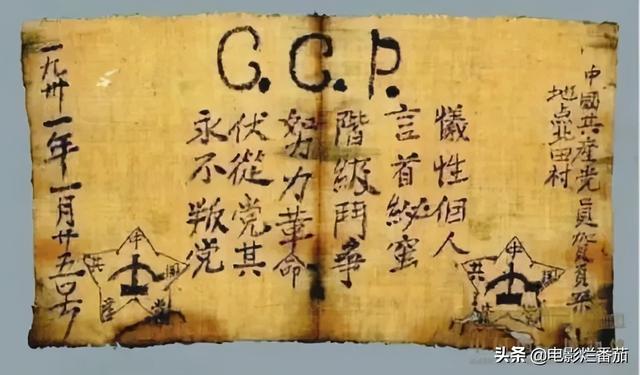 C.C.P.
中國共產党員賀頁朵
地点北田村
犧性個人
言首秘蜜
階級鬥爭
努力革命
伏從党其
永不叛党
一九卅一年一月廿五号
中國共產党
中國共產党
头条 @电影烂番茄